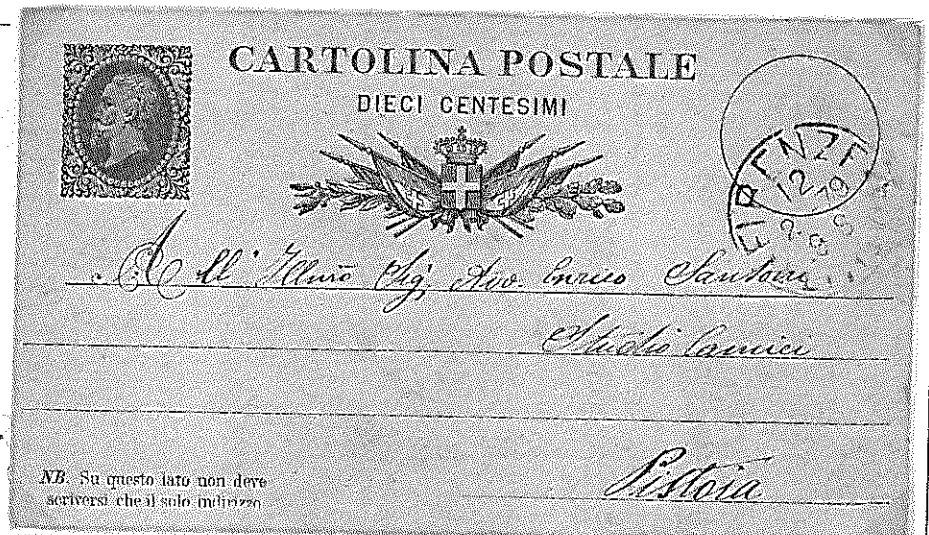 CARTOLINA POSTALE
DIECI CENTESIMI
FIRENZE
12
79
All' Illmo Sig. Avv. Enrico
Studio Camici
Pistoia
NB. Su questo lato non deve
scriversi che il solo indirizzo